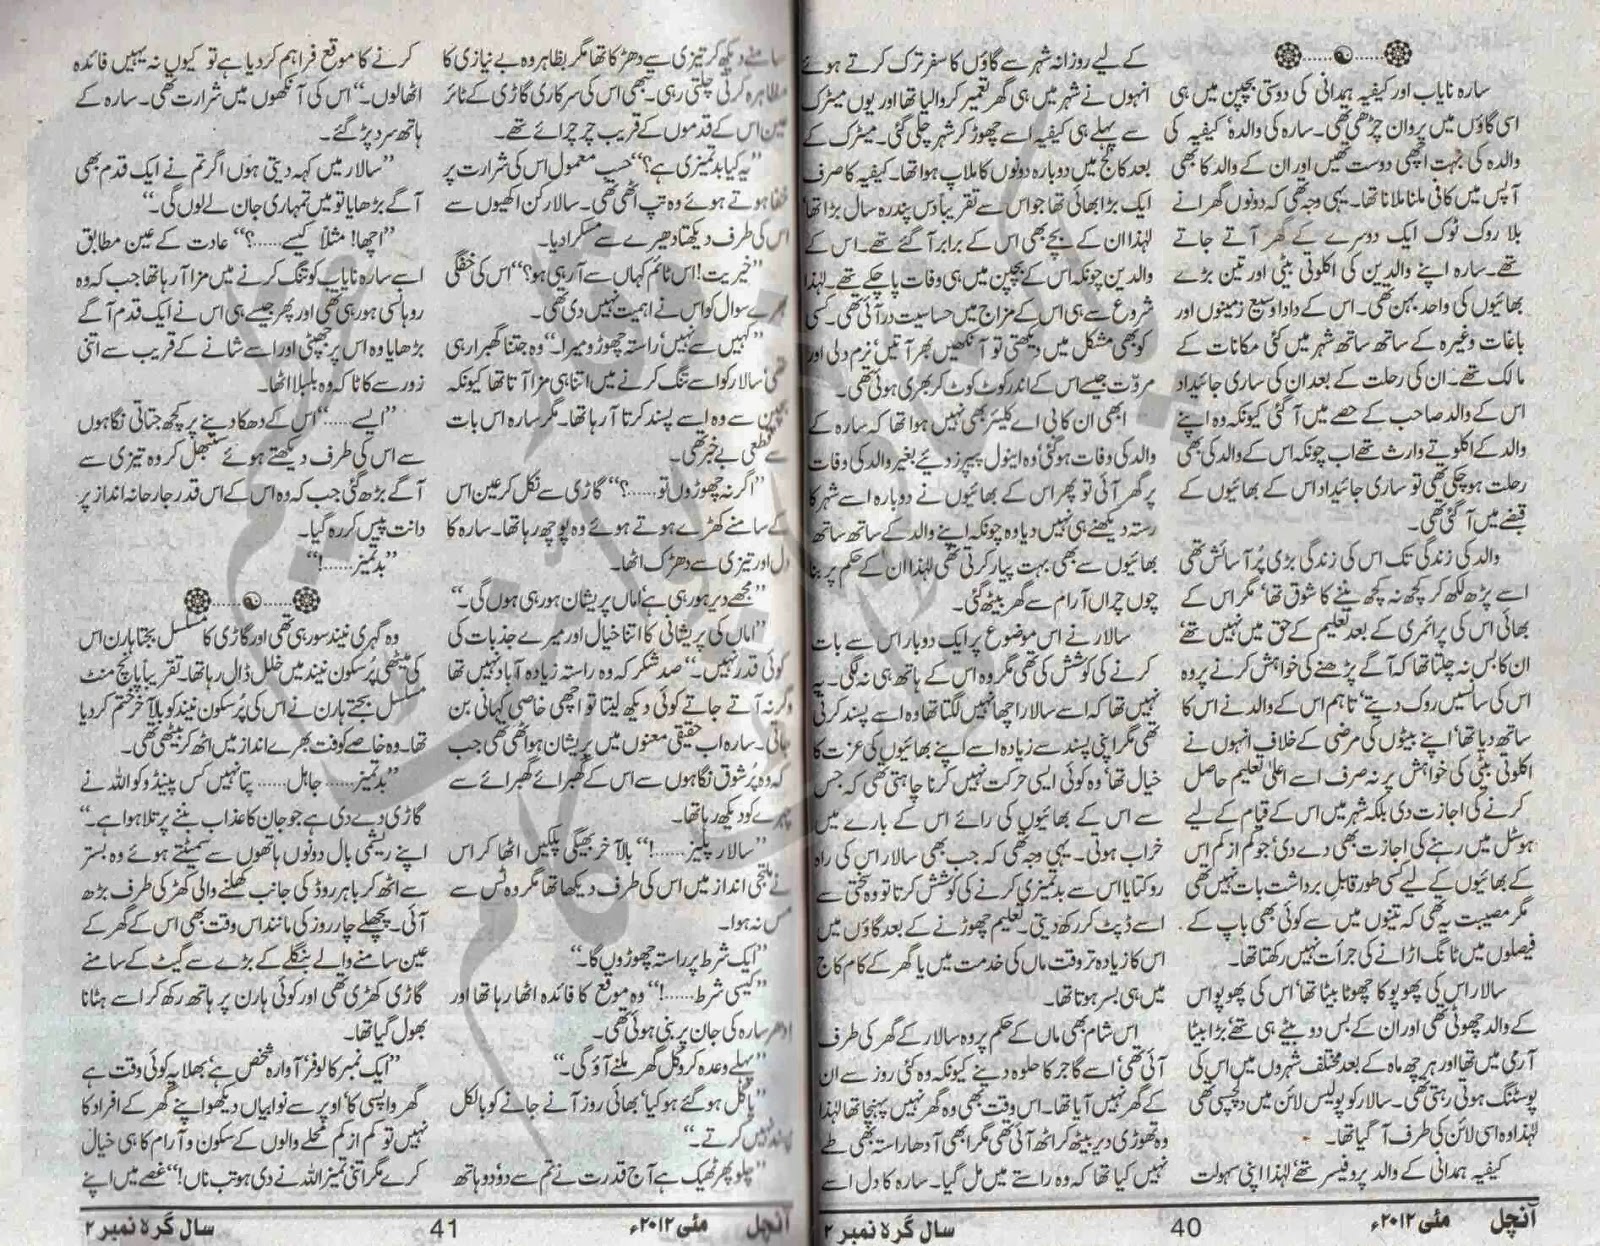 سارہ نایاب اور کیفیہ ہمدانی کی دوستی بچپن میں ہی
اسی گاؤں میں پروان چڑھی تھی۔ سارہ کی والدہ' کیفیہ کی
والدہ کی بہت اچھی دوست تھیں اور ان کے والد کا بھی
آپس میں کافی ملنا ملانا تھا۔ یہی وجہ تھی کہ دونوں گھرانے
بلا روک ٹوک ایک دوسرے کے گھر آتے جاتے
تھے۔ سارہ اپنے والدین کی اکلوتی بیٹی اور تین بڑے
بھائیوں کی واحد بہن تھی۔ اس کے دادا وسیع زمینوں اور
باغات وغیرہ کے ساتھ ساتھ شہر میں کئی مکانات کے
مالک تھے۔ ان کی رحلت کے بعد ان کی ساری جائیداد
اس کے والد صاحب کے حصے میں آ گئی کیونکہ وہ اپنے
والد کے اکلوتے وارث تھے اب چونکہ اس کے والد کی بھی
رحلت ہو چکی تھی تو ساری جائیداد اس کے بھائیوں کے
قبضے میں آ گئی تھی۔
والد کی زندگی تک اس کی زندگی بڑی پُر آسائش تھی
اسے پڑھ لکھ کر کچھ نہ کچھ بننے کا شوق تھا' مگر اس کے
بھائی اس کی پرائمری کے بعد تعلیم کے حق میں نہیں تھے'
ان کا بس نہ چلتا تھا کہ آگے پڑھنے کی خواہش کرنے پر وہ
اس کی سانسیں روک دیتے' تاہم اس کے والد نے اس کا
ساتھ دیا تھا' اپنے بیٹوں کی مرضی کے خلاف انہوں نے
اکلوتی بیٹی کی خواہش پر نہ صرف اسے اعلیٰ تعلیم حاصل
کرنے کی اجازت دی بلکہ شہر میں اس کے قیام کے لیے
ہوسٹل میں رہنے کی اجازت بھی دے دی' جو کم از کم اس
کے بھائیوں کے لیے کسی طور قابلِ برداشت بات نہیں تھی
مگر مصیبت یہ تھی کہ تینوں میں سے کوئی بھی باپ کے
فیصلوں میں ٹانگ اڑانے کی جرأت نہیں رکھتا تھا۔
سالار اس کی پھوپو کا چھوٹا بیٹا تھا' اس کی پھوپو اس
کے والد چھوٹی تھی اور ان کے بس دو بیٹے ہی تھے' بڑا بیٹا
آرمی میں تھا اور ہر چھ ماہ کے بعد مختلف شہروں میں اس کی
پوسٹنگ ہوتی رہتی تھی۔ سالار کو پولیس لائن میں دلچسپی تھی
لہٰذا وہ اسی لائن کی طرف آ گیا تھا۔
کیفیہ ہمدانی کے والد پروفیسر تھے' لہٰذا اپنی سہولت
کے لیے روزانہ شہر سے گاؤں کا سفر ترک کرتے ہوئے
انہوں نے شہر میں ہی گھر تعمیر کروا لیا تھا اور یوں میٹرک
سے پہلے ہی کیفیہ اسے چھوڑ کر شہر چلی گئی۔ میٹرک کے
بعد کالج میں دوبارہ دونوں کا ملاپ ہوا تھا۔ کیفیہ کا صرف
ایک بڑا بھائی تھا جو اس سے تقریباً دس پندرہ سال بڑا تھا'
لہٰذا ان کے بچے بھی اس کے برابر آ گئے تھے۔ اس کے
والدین چونکہ اس کے بچپن میں ہی وفات پا چکے تھے۔ لہٰذا
شروع سے ہی اس کے مزاج میں حساسیت در آئی تھی۔ کسی
کو بھی مشکل میں دیکھتی تو آنکھیں بھر آتیں' نرم دلی اور
مروّت جیسے اس کے اندر کوٹ کوٹ کر بھری ہوئی تھی۔
ابھی ان کا بی اے کلیئر بھی نہیں ہوا تھا کہ سارہ کے
والد کی وفات ہو گئی' وہ اینول پیپرز دیئے بغیر والد کی وفات
پر گھر آئی تو پھر اس کے بھائیوں نے دوبارہ اسے شہر کا
رستہ دیکھنے ہی نہیں دیا وہ چونکہ اپنے والد کے ساتھ ساتھ
بھائیوں سے بھی بہت پیار کرتی تھی لہٰذا ان کے حکم پر بنا
چوں چراں آرام سے گھر بیٹھ گئی۔
سالار نے اس موضوع پر ایک دو بار اس سے بات
کرنے کی کوشش کی تھی مگر وہ اس کے ہاتھ ہی نہ لگی۔ یہ
نہیں تھا کہ اسے سالار اچھا نہیں لگتا تھا وہ اسے پسند کرتی
تھی مگر اپنی پسند سے زیادہ اسے اپنے بھائیوں کی عزت کا
خیال تھا' وہ کوئی ایسی حرکت نہیں کرنا چاہتی تھی کہ جس
سے اس کے بھائیوں کی رائے اس کے بارے میں
خراب ہوتی۔ یہی وجہ تھی کہ جب بھی سالار اس کی راہ
روکتا یا اس سے بدتمیزی کرنے کی کوشش کرتا تو وہ سختی سے
اسے ڈپٹ کر رکھ دیتی۔ تعلیم چھوڑنے کے بعد گاؤں میں
اس کا زیادہ تر وقت ماں کی خدمت میں یا گھر کے کام کاج
میں ہی بسر ہوتا تھا۔
اس شام بھی ماں کے حکم پر وہ سالار کے گھر کی طرف
آئی تھی' اسے گاجر کا حلوہ دینے کیونکہ وہ کئی روز سے ان
کے گھر نہیں آیا تھا۔ اس وقت بھی وہ گھر نہیں پہنچا تھا لہٰذا
وہ تھوڑی دیر بیٹھ کر اٹھ آئی تھی مگر ابھی آدھا راستہ بھی طے
نہیں کیا تھا کہ وہ راستے میں مل گیا۔ سارہ کا دل اسے
آنچل مئی ۲۰۱۲ء 40 سال گرہ نمبر ۲
سامنے دیکھ کر تیزی سے دھڑکا تھا مگر بظاہر وہ بے نیازی کا
مظاہرہ کرتی چلتی رہی۔ تبھی اس کی سرکاری گاڑی کے ٹائر
عین اس کے قدموں کے قریب چرچرائے تھے۔
"یہ کیا بدتمیزی ہے؟" حسبِ معمول اس کی شرارت پر
خفا ہوتے ہوئے وہ تپ اٹھی تھی۔ سالار کن اکھیوں سے
اس کی طرف دیکھتا دھیرے سے مسکرا دیا۔
"خیریت! اس ٹائم کہاں سے آ رہی ہو؟" اس کی خفگی
بھرے سوال کو اس نے اہمیت نہیں دی تھی۔
"کہیں سے نہیں' راستہ چھوڑو میرا۔" وہ جتنا گھبرا رہی
تھی' سالار کو اسے تنگ کرنے میں اتنا ہی مزا آتا تھا کیونکہ
بچپن سے وہ اسے پسند کرتا آ رہا تھا۔ مگر سارہ اس بات
سے قطعی بے خبر تھی۔
"اگر نہ چھوڑوں تو......؟" گاڑی سے نکل کر عین اس
کے سامنے کھڑے ہوتے ہوئے وہ پوچھ رہا تھا۔ سارہ کا
دل اور تیزی سے دھڑک اٹھا۔
"مجھے دیر ہو رہی ہے' اماں پریشان ہو رہی ہوں گی۔"
"اماں کی پریشانی کا اتنا خیال اور میرے جذبات کی
کوئی قدر نہیں۔" صد شکر کہ وہ راستہ زیادہ آباد نہیں تھا
وگرنہ آتے جاتے کوئی دیکھ لیتا تو اچھی خاصی کہانی بن
جاتی۔ سارہ اب حقیقی معنوں میں پریشان ہو اٹھی تھی جب
کہ وہ پُر شوق نگاہوں سے اس کے گھبرائے گھبرائے سے
چہرے کو دیکھ رہا تھا۔
"سالار پلیز......!" بالآخر بھیگی پلکیں اٹھا کر اس
نے ملتجی انداز میں اس کی طرف دیکھا تھا مگر وہ ٹس سے
مس نہ ہوا۔
"ایک شرط پر راستہ چھوڑوں گا۔"
"کیسی شرط......!" وہ موقع کا فائدہ اٹھا رہا تھا اور
ادھر سارہ کی جان پر بنی ہوئی تھی۔
"پہلے وعدہ کرو کل گھر ملنے آؤ گی۔"
"پاگل ہو گئے ہو کیا' بھائی روز آنے جانے کو بالکل
پسند نہیں کرتے۔"
"چلو پھر ٹھیک ہے آج قدرت نے تم سے دو دو ہاتھ
کرنے کا موقع فراہم کر دیا ہے تو کیوں نہ یہیں فائدہ
اٹھا لوں۔" اس کی آنکھوں میں شرارت تھی۔ سارہ کے
ہاتھ سرد پڑ گئے۔
"سالار میں کہہ دیتی ہوں اگر تم نے ایک قدم بھی
آگے بڑھایا تو میں تمہاری جان لے لوں گی۔"
"اچھا! مثلاً کیسے......؟" عادت کے عین مطابق
اسے سارہ نایاب کو تنگ کرنے میں مزا آ رہا تھا جب کہ وہ
روہانسی ہو رہی تھی اور پھر جیسے ہی اس نے ایک قدم آگے
بڑھایا وہ اس پر جھپٹی اور اسے شانے کے قریب سے اتنی
زور سے کاٹا کہ وہ بلبلا اٹھا۔
"ایسے......" اس کے دھکا دینے پر کچھ جتاتی نگاہوں
سے اس کی طرف دیکھتے ہوئے سنبھل کر وہ تیزی سے
آگے بڑھ گئی جب کہ وہ اس کے اس قدر جارحانہ انداز پر
دانت پیس کر رہ گیا۔
"بدتمیز......!"
وہ گہری نیند سو رہی تھی اور گاڑی کا مسلسل بجتا ہارن اس
کی میٹھی پُر سکون نیند میں خلل ڈال رہا تھا۔ تقریباً پانچ منٹ
مسلسل بجتے ہارن نے اس کی پُر سکون نیند کو بالآخر ختم کر دیا
تھا۔ وہ خاصے کوفت بھرے انداز میں اٹھ کر بیٹھی تھی۔
"بدتمیز...... جاہل...... پتا نہیں کس پینڈو کو اللہ نے
گاڑی دے دی ہے جو جان کا عذاب بننے پر تلا ہوا ہے۔"
اپنے ریشمی بال دونوں ہاتھوں سے سمیٹتے ہوئے وہ بستر
سے اٹھ کر باہر روڈ کی جانب کھلنے والی کھڑکی کی طرف بڑھ
آئی۔ پچھلے چار روز کی مانند اس وقت بھی اس کے گھر کے
عین سامنے والے بنگلے کے بڑے سے گیٹ کے سامنے
گاڑی کھڑی تھی اور کوئی ہارن پر ہاتھ رکھ کر اسے ہٹانا
بھول گیا تھا۔
"ایک نمبر کا لوفر' آوارہ شخص ہے' بھلا یہ کوئی وقت ہے
گھر واپسی کا' اوپر سے نوابیاں دیکھو اپنے گھر کے افراد کا
نہیں تو کم از کم محلے والوں کے سکون و آرام کا ہی خیال
کرے مگر اتنی تمیز اللہ نے دی ہو تب ناں!" غصے میں اپنے
آنچل مئی ۲۰۱۲ء 41 سال گرہ نمبر ۲